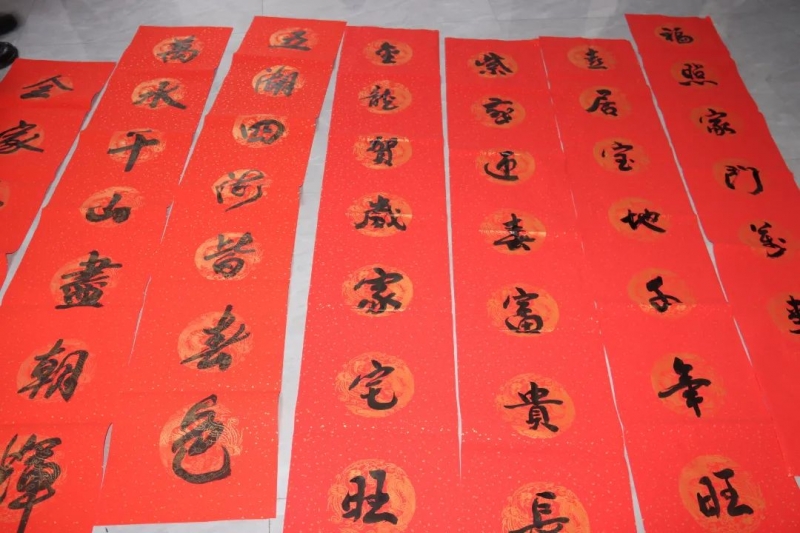 福照家門萬
喜居宝地千年旺
迎春富貴長
金龍賀歲家宅旺
五湖四海皆春色
萬水千山盡朝輝
全家